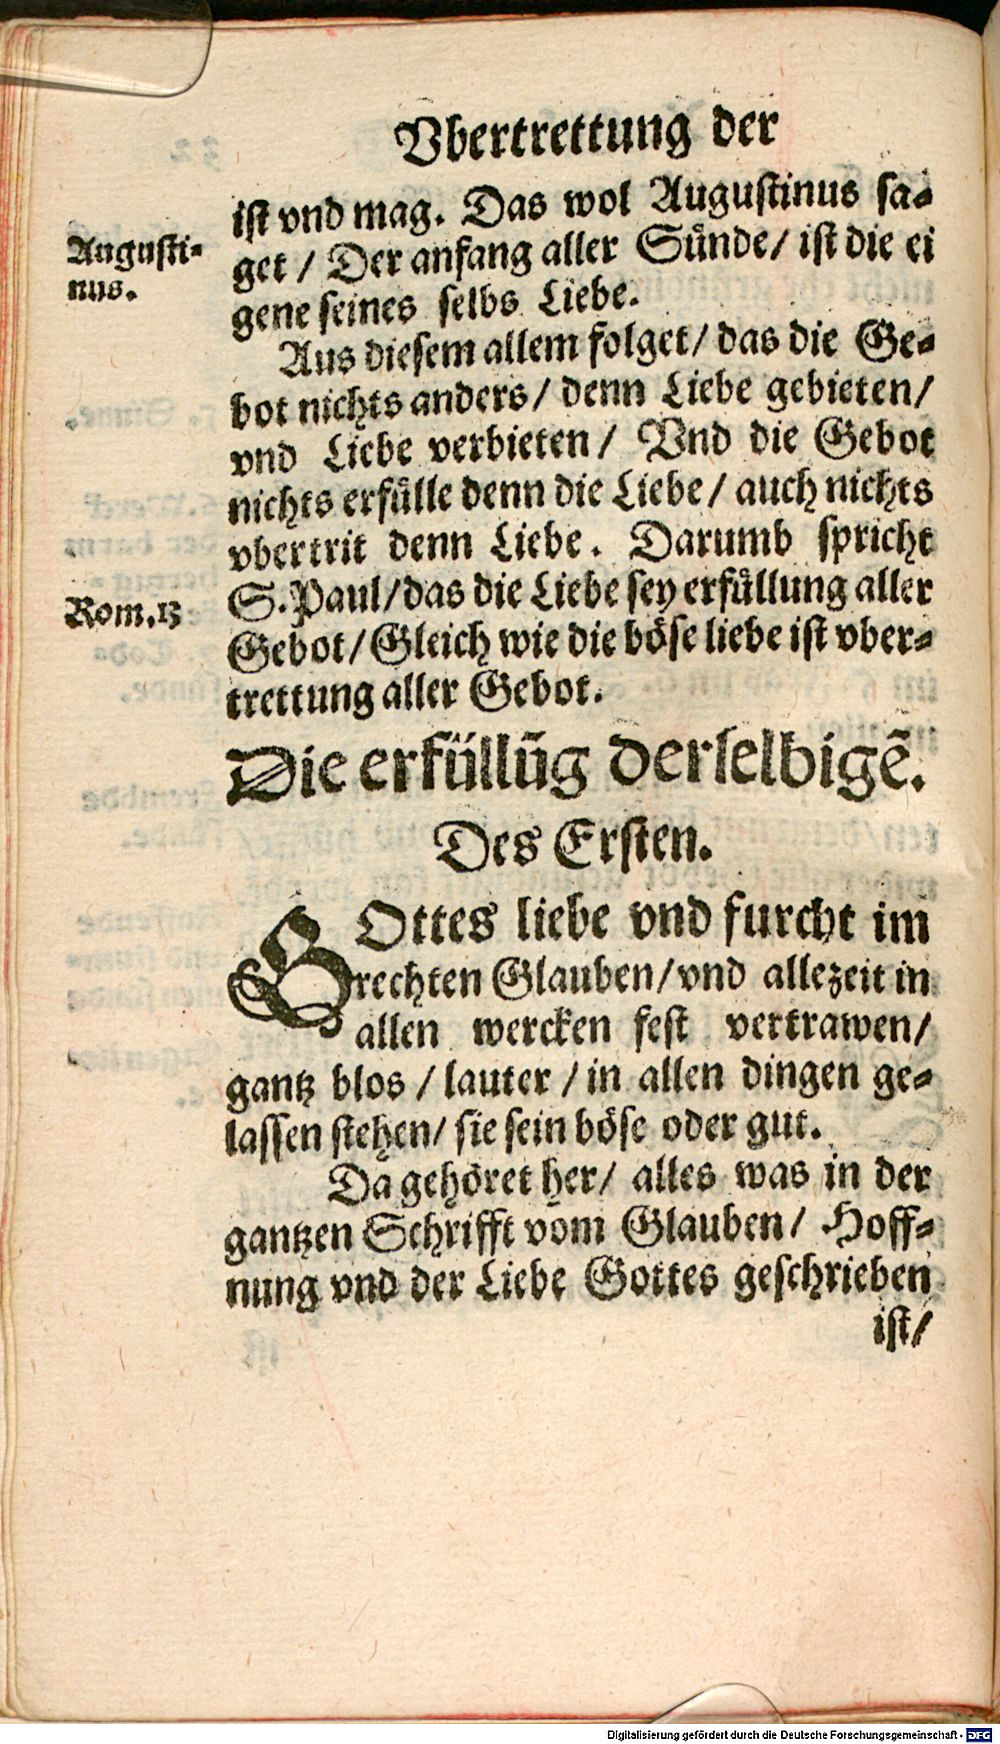 Vbertrettung der
ist vnd mag. Das wol Augustinus sa-
get / Der anfang aller Sünde/ ist die ei
gene seines selbs Liebe.
Augusti-
nus.
Aus diesem allem folget/ das die Ge-
bot nichts anders/ denn Liebe gebieten/
vnd Liebe verbieten/ Vnd die Gebot
nichts erfülle denn die Liebe/ auch nichts
vbertrit denn Liebe. Darumb spricht
S. Paul/das die Liebe sey erfüllung aller
Gebot/ Gleich wie die böse liebe ist vber-
trettung aller Gebot.
Rom.13
Die erfüllūg derselbigē.
Des Ersten.
GOttes liebe vnd furcht im
rechten Glauben/vnd allezeit in
allen wercken fest vertrawen/
gantz blos / lauter / in allen dingen ge-
lassen stehen/ sie sein böse oder gut.
Da gehöret her/ alles was in der
gantzen Schrifft vom Glauben/ Hoff-
nung vnd der Liebe Gottes geschrieben
ist/
Digitalisierung gefördert durch die Deutsche Forschungsgemeinschaft - DFG